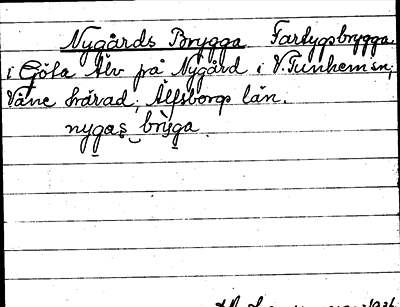 Nygårds Brygga Fartygsbrygga
i Göta Älv på Nygård i V. Tunhem sn,
Väne härad, Älfsborgs län.
nygas bryga